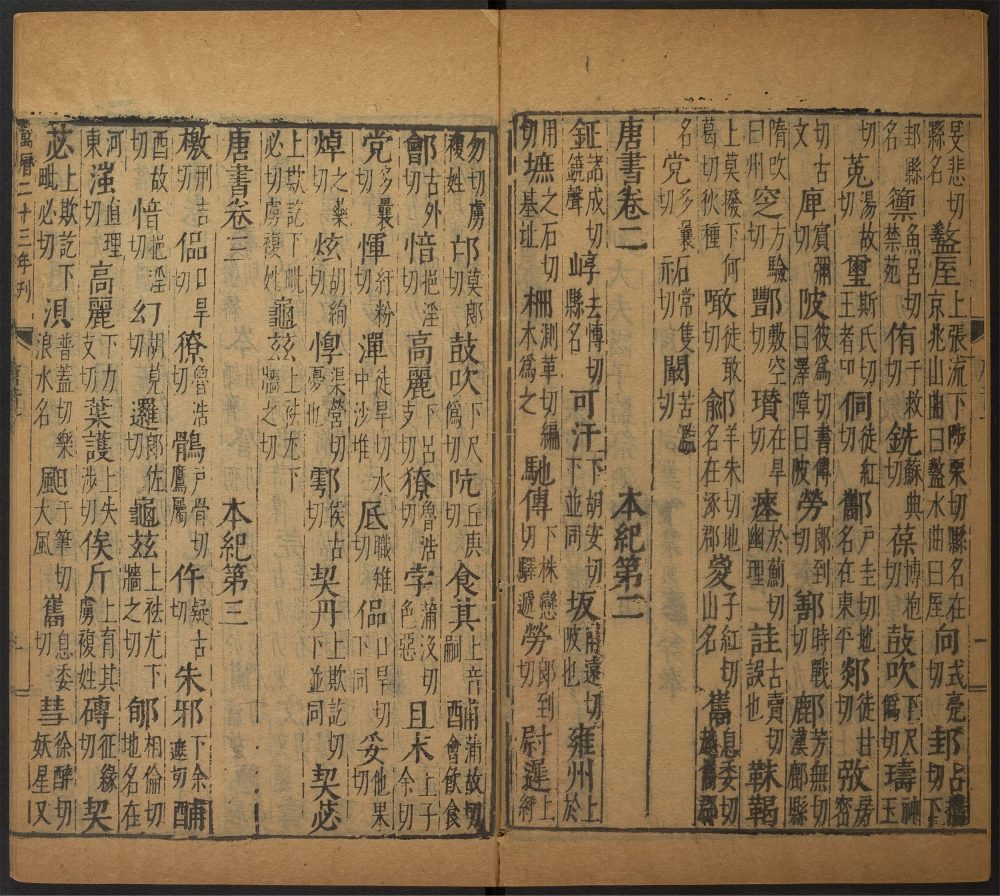 旻悲切縣名盩厔上張流下陟栗切縣名在京兆山曲曰盩水曲曰厔向式亮切邽占攜切下
邽縣名籞魚呂切禁苑侑于救切銑蘇典切葆博抱切鼓吹下尺爲切璹神玉
切菟湯故切璽斯氏切王者印侗徒紅切酅戶圭切地名在東平郯徒甘切弢房密
切古文庳賓彌切陂彼爲切書傳曰澤障曰陂勞郎到切鄯時戰切鄜芳無切漢鄜縣
隋改曰州窆方驗切酆敷空切瓚在旱切瘞於罽切幽理詿古賣切誤也靺鞨
上莫撥下何葛切狄種噉徒敢切羊朱切地名在涿郡嵏子紅切山名巂息委切越巂郡
名党多曩切祏常隻切闞苦濫切
唐書卷二 本紀第二
鉦諸成切鐃聲崞去慱切縣名可汗下胡安切下並同坂甫遠切陂也雍州上於
用切墌之石切基址柵測革切編木爲之馳傳下株戀切驛遞勞郎到切尉遲上紆
勿切虜複姓邙莫郎切鼓吹下尺爲切阬丘庚切食其上音嗣酺蒲故切會飲食
鄶古外切愔挹淫切高麗下呂支切獠魯浩切孛蒲沒切色惡且末上子余切
党多曩切惲紆粉切潬徒旱切水中沙堆厎職雉切侃口旱切下同妥他果切
焯之藥切炫胡絢切惸渠營切憂也鄠侯古切契丹上欺訖切下並同契苾
上欺訖下毗必切虜複姓龜兹上祛尤下牆之切
唐書卷三 本紀第三
檄刑吉切侃口旱切獠魯浩切鶻戶骨切鷹屬仵疑古切朱邪下余遮切酺
酉故切愔挹淫切幻胡莧切邏郎佐切龜兹上祛尤下牆之切郇相倫切地名在
河東滍直理切高麗下力支切葉護上失涉切俟斤上育其切虜複姓磚征緣切契
苾上欺訖下毗必切浿普蓋切樂浪水名于筆切大風巂息委切彗徐醉切妖星又
萬曆二十三年刊